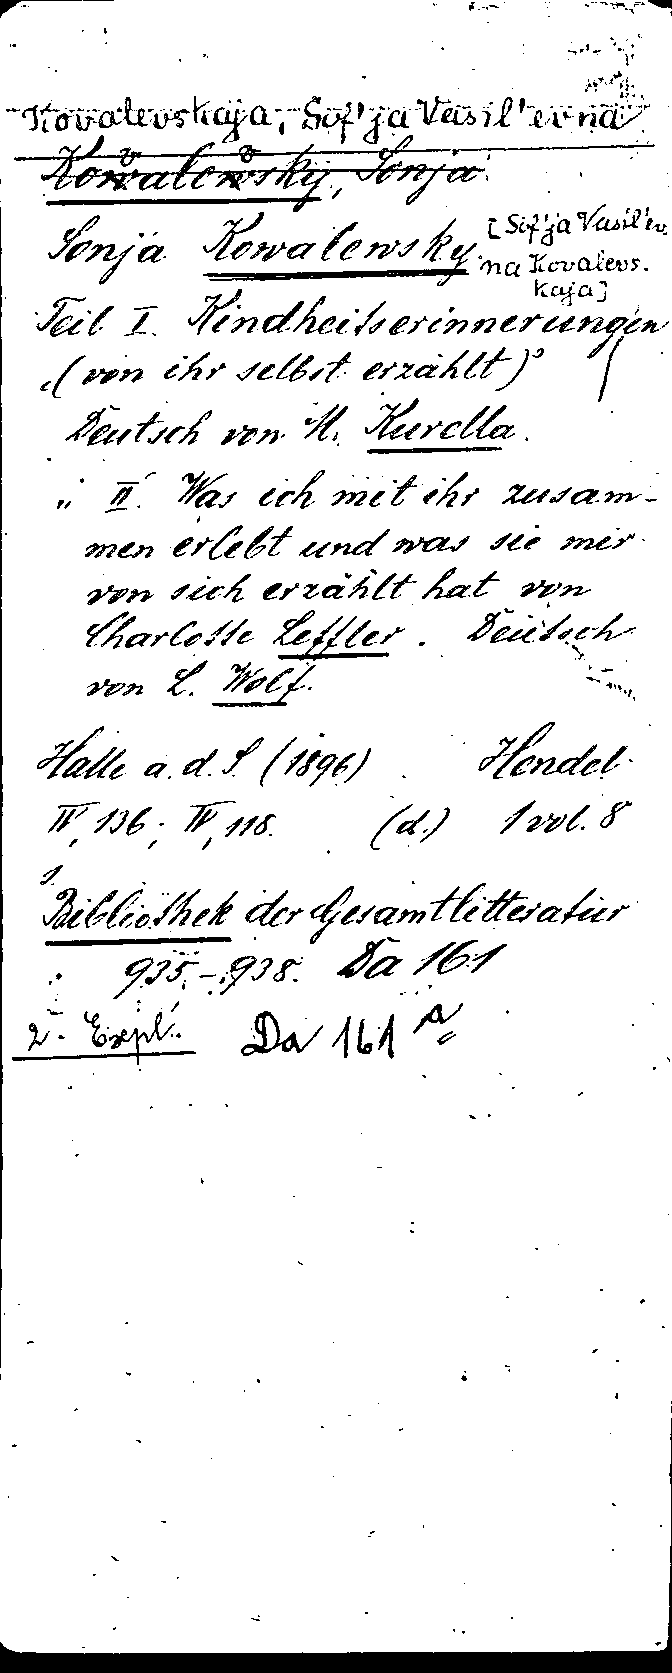 Kovalevskaja, Sof'ja Vasil'evna
Kowalewsky, Sonja.
Sonja Kowalewsky. [Sof'ja Vasil'ev
na Kovalevs.
kaja]
Teil I. Kindheitserinnerungen
„(von ihr selbst erzählt)"
Deutsch von M. Kurella.
„ II. Was ich mit ihr zusam-
men erlebt und was sie mir
von sich erzählt hat von
Charlotte Leffler. Deutsch
von L. Wolf.
Halle a. d. S. (1896) Hendel.
IV, 136; IV, 118. (d.) 1 vol. 8
Bibliothek der Gesamtlitteratur
935.-938. Da 161
2. Expl. Da 161 a